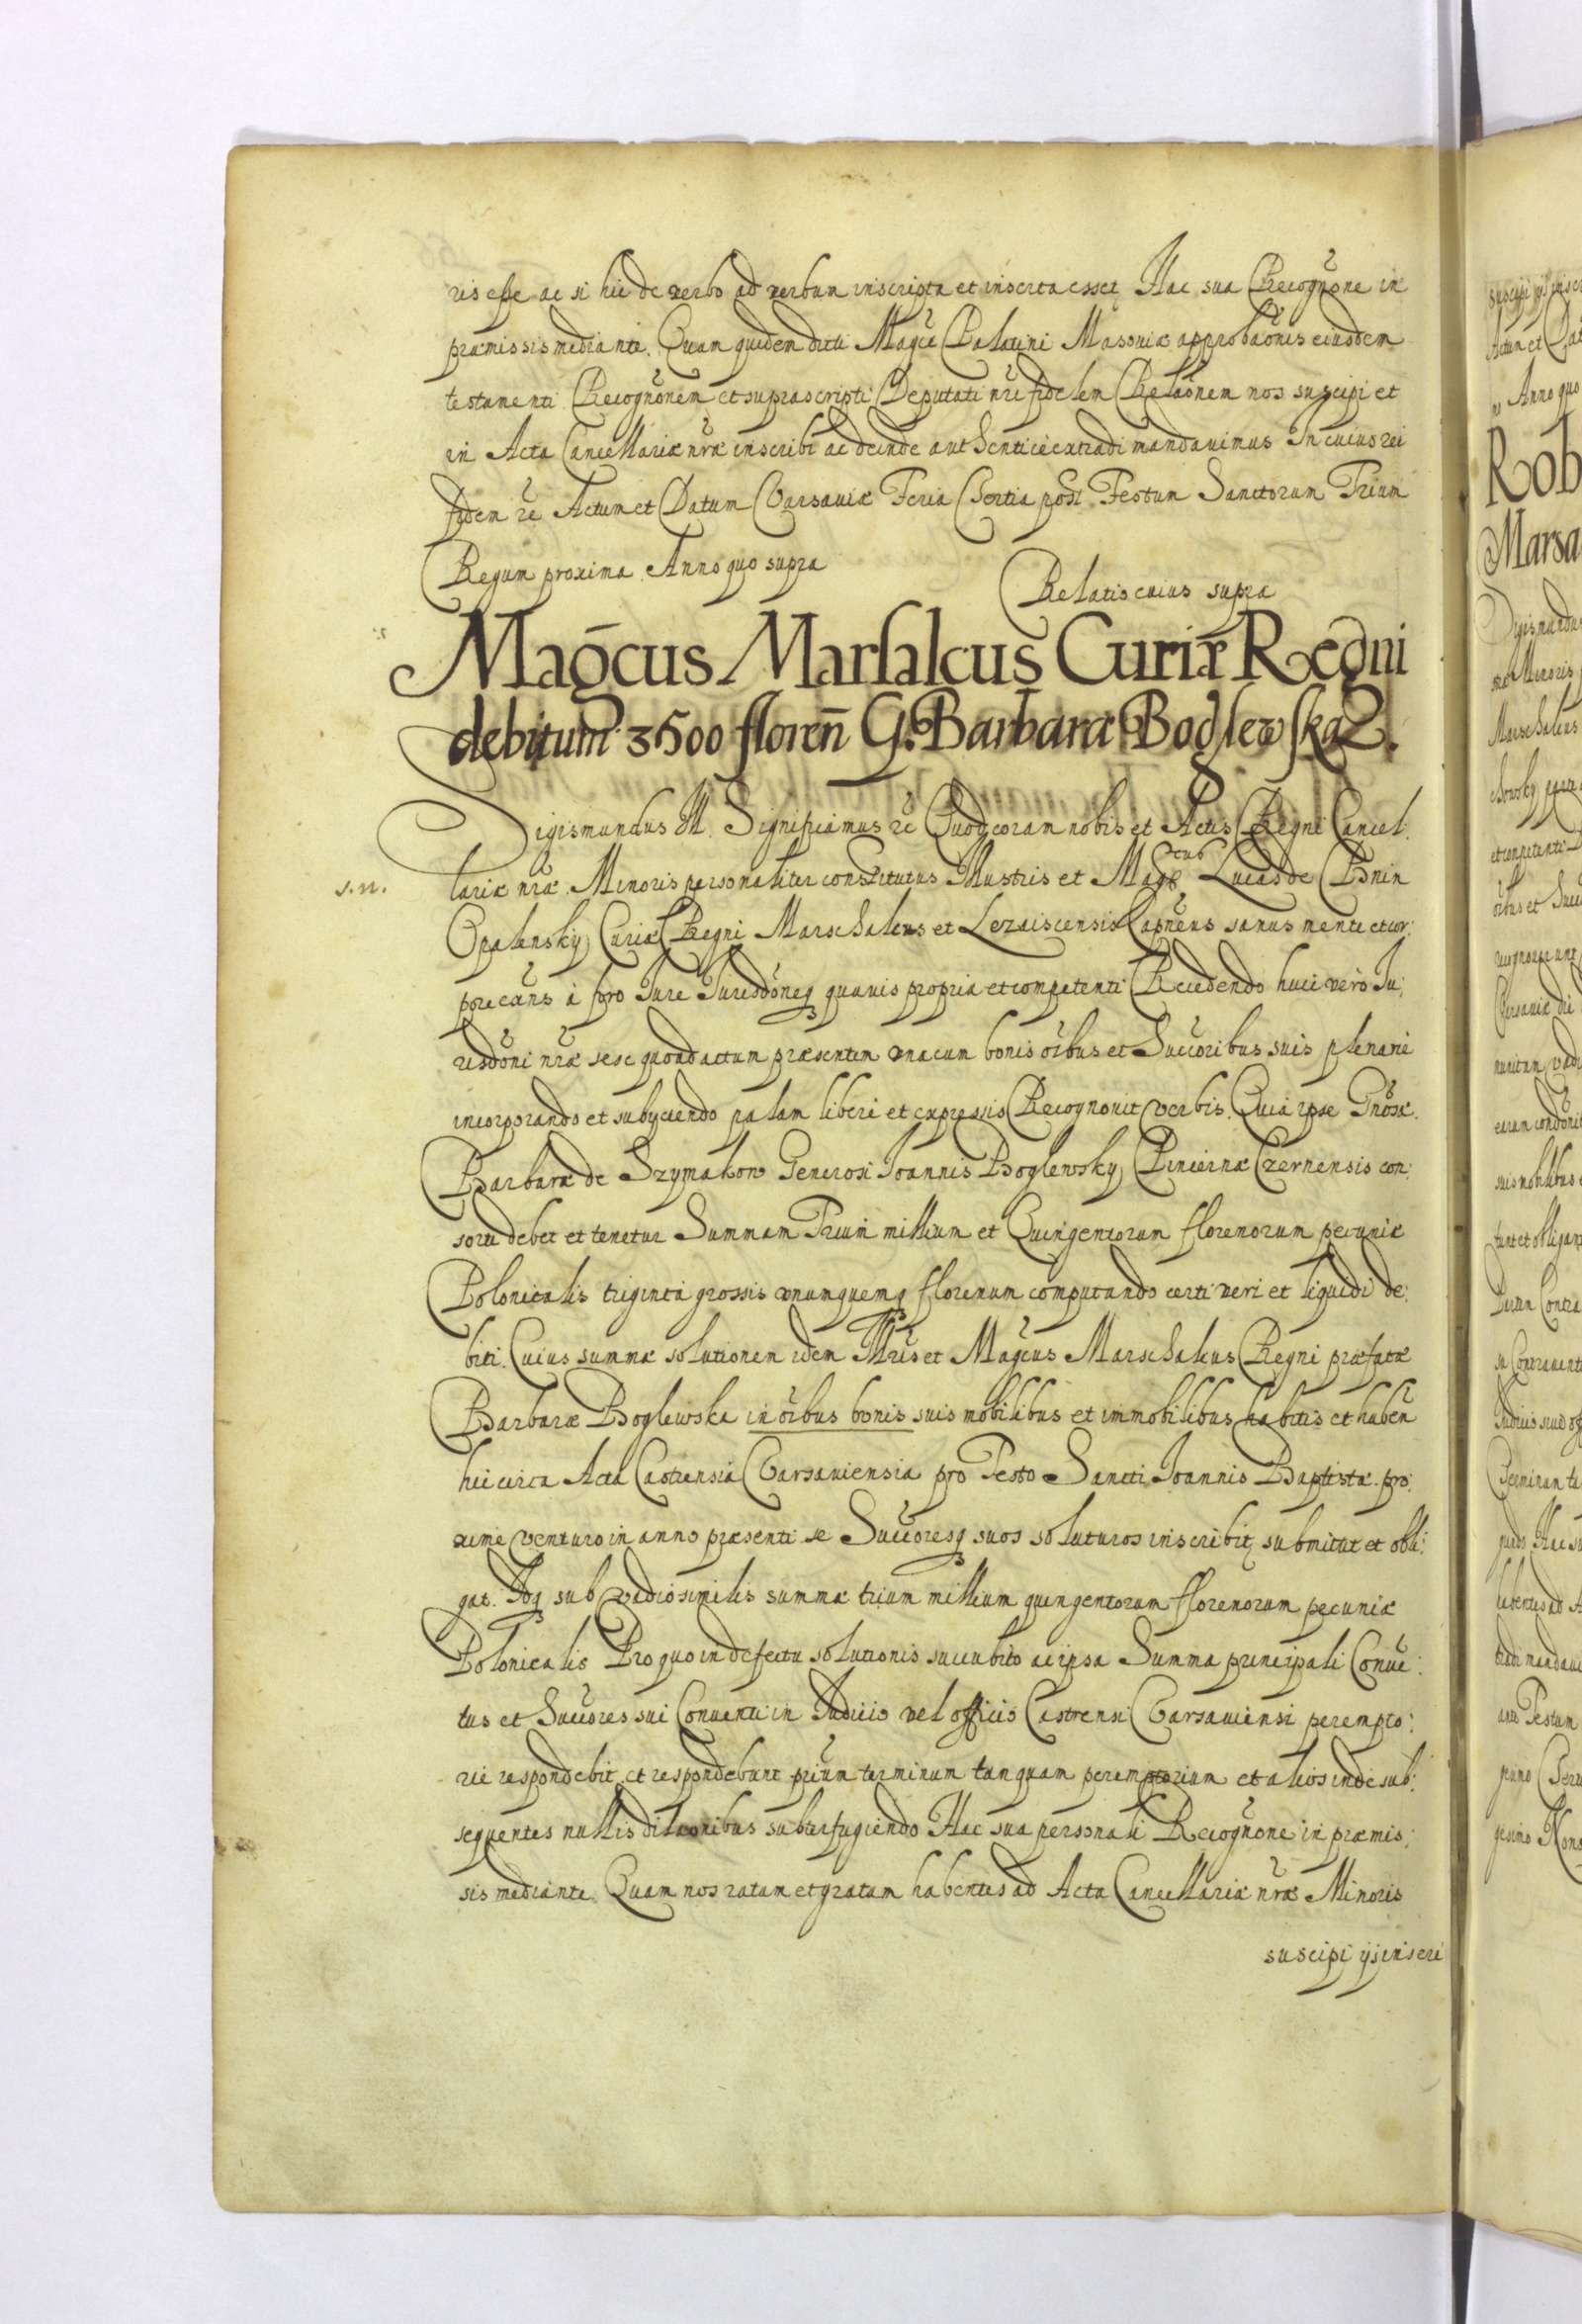 ris esse ac si hic de verbo ad verbum inscripta et inserta esset Hac sua Recognõne in
præmissis mediante. Quam quidem dicti Magci Palatini Masoviæ approbaõnis eiusdem
testamenti Recognõnem et suprascripti Deputati nri fidelem Relaõnem nos suscipi et
in Acta Cancellariæ nræ inscribi ac deinde authenticè extradi mandavimus In cuius rei
fidem rc Actum et Datum Varsaviæ Feria Tertia post Festum Sanctorum Trium
Regum proxima Anno quo supra
Relatis cuius supra
Magcus Marsalcus Curiæ Regni
debitum 3500 floreñ G. Barbaræ Boglewska.
Sigismundus III. Significamus rc Quod coram nobis et Actis Regni Cancel:
s.n.
lariæ nræ Minoris personaliter constitutus Illustris et Magcus Lucas de Bnin
Opalensky Curiæ Regni Marschalcus et Lezaiscensis Capneus sanus mente et cor:
pore exñs à foro Jure Jurisdõneq quavis propria et competenti Recedendo huic verò Ju:
risdõni nræ sese quoad actum præsentem vna cum bonis oĩbus et Succoribus suis plenariè
incorporando et subyciendo palam liberè et expressis Recognovit verbis. Quia ipse Gnosæ
Barbaræ de Szymakow Generosi Joannis Boglewsky Pincernæ Czernensis con:
sorti debet et tenetur Summam Trium millium et Quingentorum florenorum pecuniæ
Polonicalis triginta grossis vnumquemq florenum computando certi veri et liquidi de:
biti. Cuius summæ solutionem idem Illris et Magcus Marschalcus Regni præfatæ
Barbaræ Boglewska in oĩbus bonis suis mobilibus et immobilibus habitis et habeñ
hic circa Acta Castrensia Varsaviensia pro Festo Sancti Joannis Baptistæ pro:
ximè venturo in anno præsenti se Succoresq suos soluturos inscribit submittit et obli:
gat. Idq sub vadio similis summæ trium millium quingentorum florenorum pecuniæ
Polonicalis Pro quo in defectu solutionis succubito ac ipsa Summa principali Conue:
tus et Succores sui Conuenti in Judicio vel officio Castrensi Varsaviensi perempto:
riè respondebit et respondebunt primum terminum tanquam peremptorium et alios inde sub:
sequentes nullis dilaõnibus subterfugiendo Hac sua personali Recognõne in præmis:
sis mediante Quam nos ratam et gratam habentes ad Acta Cancellariæ nræ Minoris
suscipi ijs inscri